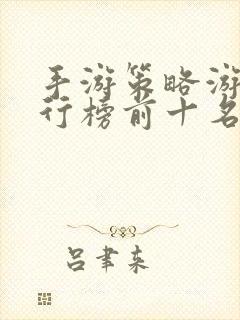 手游策略游
行榜前十名
吕聿来